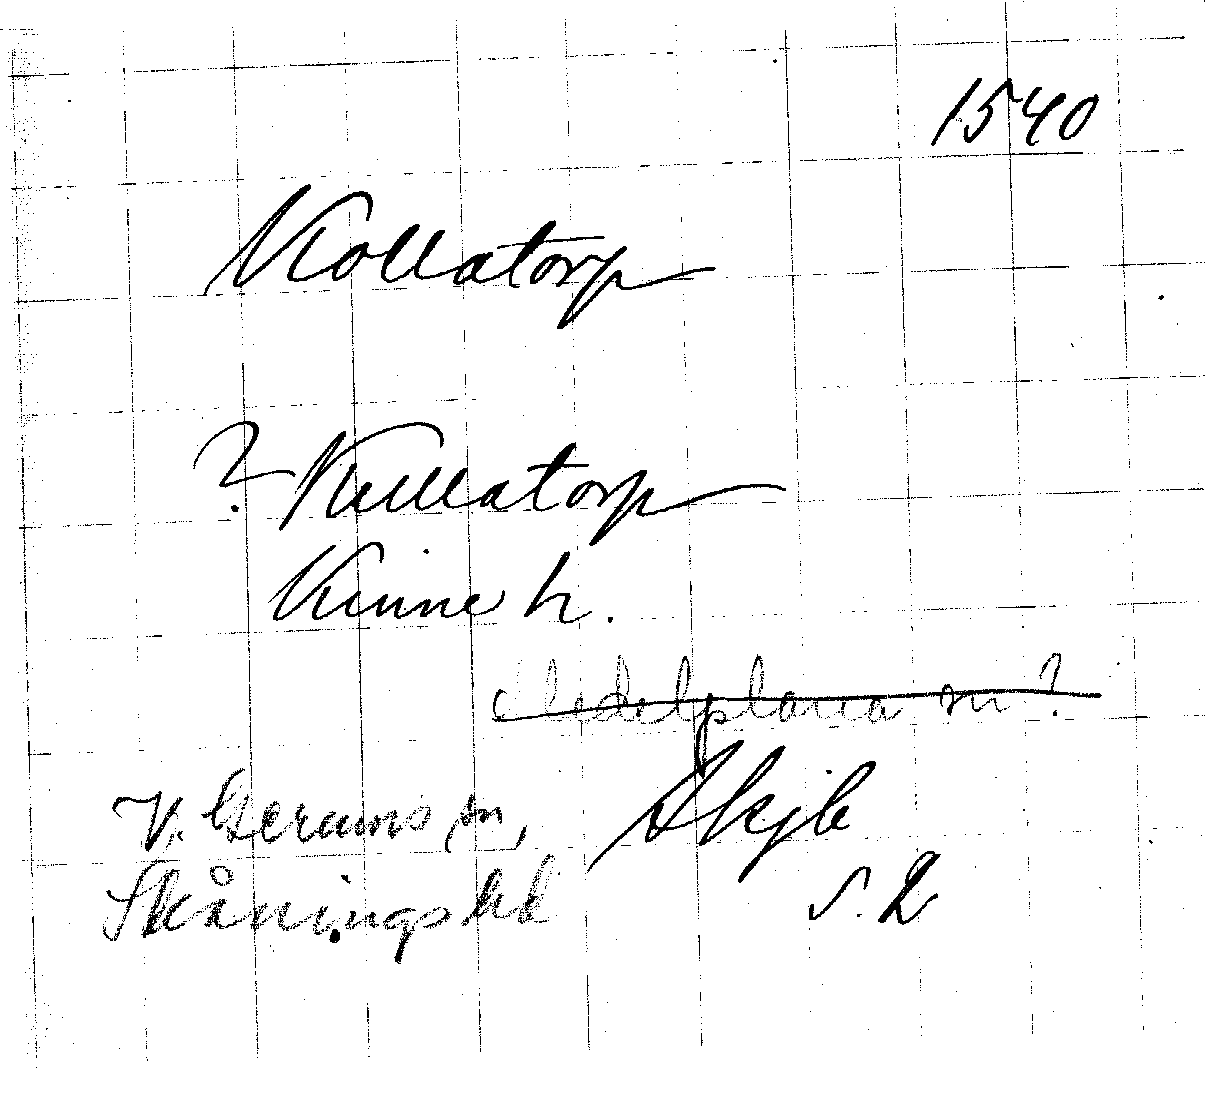 1540
Kollatorp
? Kullatorp
Kinne h.
Medelplana sn ?
V. Gerums sn,
Skånings hd
Skjb
s. 2